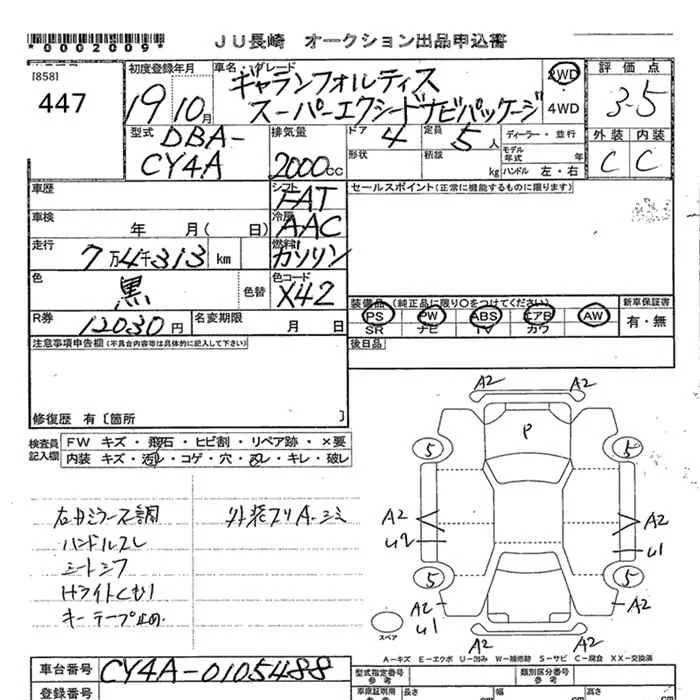 *0002009*
JU長崎 オークション出品申込書
[858]
447
初度登録年月
19 10月
車名・グレード
ギャランフォルティス
スーパーエクシードナビパッケージ
2WD
4WD
評価点
3.5
外装 内装
C C
型式 DBA-
CY4A
排気量
2000cc
ドア 4
形状
定員 5人
積載 kg
ディーラー・並行
モデル年式 年
ハンドル 左・右
車歴
シフト FAT
セールスポイント(正常に機能するものに限ります)
車検 年 月( 日)
冷房 AAC
走行 7万4千313 km
燃料 ガソリン
色 黒 色替
色コード X42
装備品(純正品に限り○をつけてください)
新車保証書
PS PW ABS エアB AW
有・無
SR ナビ TV カワ
R券 12030円
名変期限 月 日
後日品
注意事項申告欄(不具合内容等は具体的に記入して下さい)
修復歴 有〔箇所 〕
検査員記入欄
FW キズ・飛石・ヒビ割・リペア跡・×要
内装 キズ・汚れ・コゲ・穴・スレ・キレ・破レ
ハンドルスレ
シートシワ
HライトくもI
キーテープ止め
外装フリA.シミ
A2 A2
P
5 5
A2 A2
U2 U1
5 5
A2 A2
U1
スペア
A2 A2
A-キズ E-エクボ U-凹み W-補修跡 S-サビ C-腐食 XX-交換済
車台番号 CY4A-0105488
登録番号
型式指定番号 参考
類別区分番号 参考
車庫証明用 参考
長さ cm
幅 cm
高さ cm